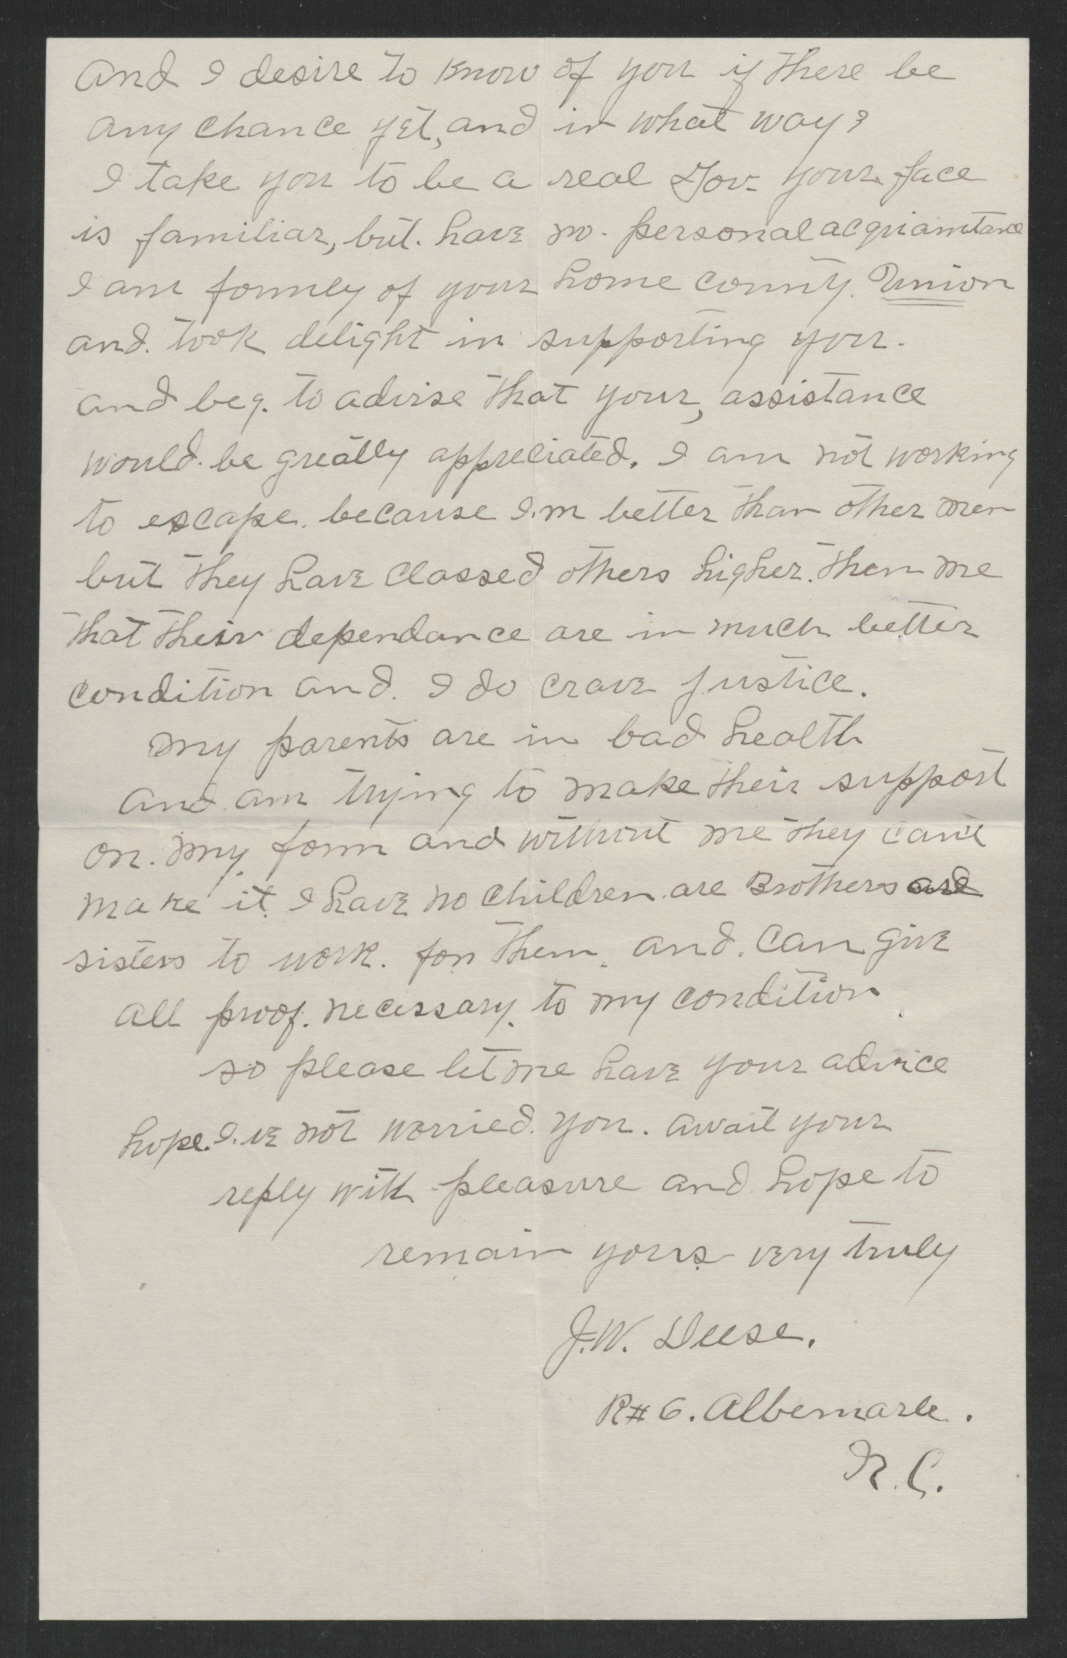 and I desire to know of you if there be
any chance yet, and in what way?
I take you to be a real Gov. your face
is familiar, but. have no. personal acquiamtance
I am formley of your home county. Union
and. took delight in supporting you.
and beg. to advise that your, assistance
would. be greatly appreciated. I am not working
to escape. because I.m better than other men
but they have classed others higher. then me
that their dependance are in much better
condition and. I do crave justice.
my parents are in bad health
and am trying to make their support
on. my farm and without me they cant
make it. I have no children are Brothers and
sisters to work. for them. and. can give
all proof. necessary. to my condition.
so please let me have your advice
hope. I.ve not worried. you. await your
reply with pleasure and hope to
remain yours very truly
J.W. Deese.
R# 6. Albemarle.
N.C.